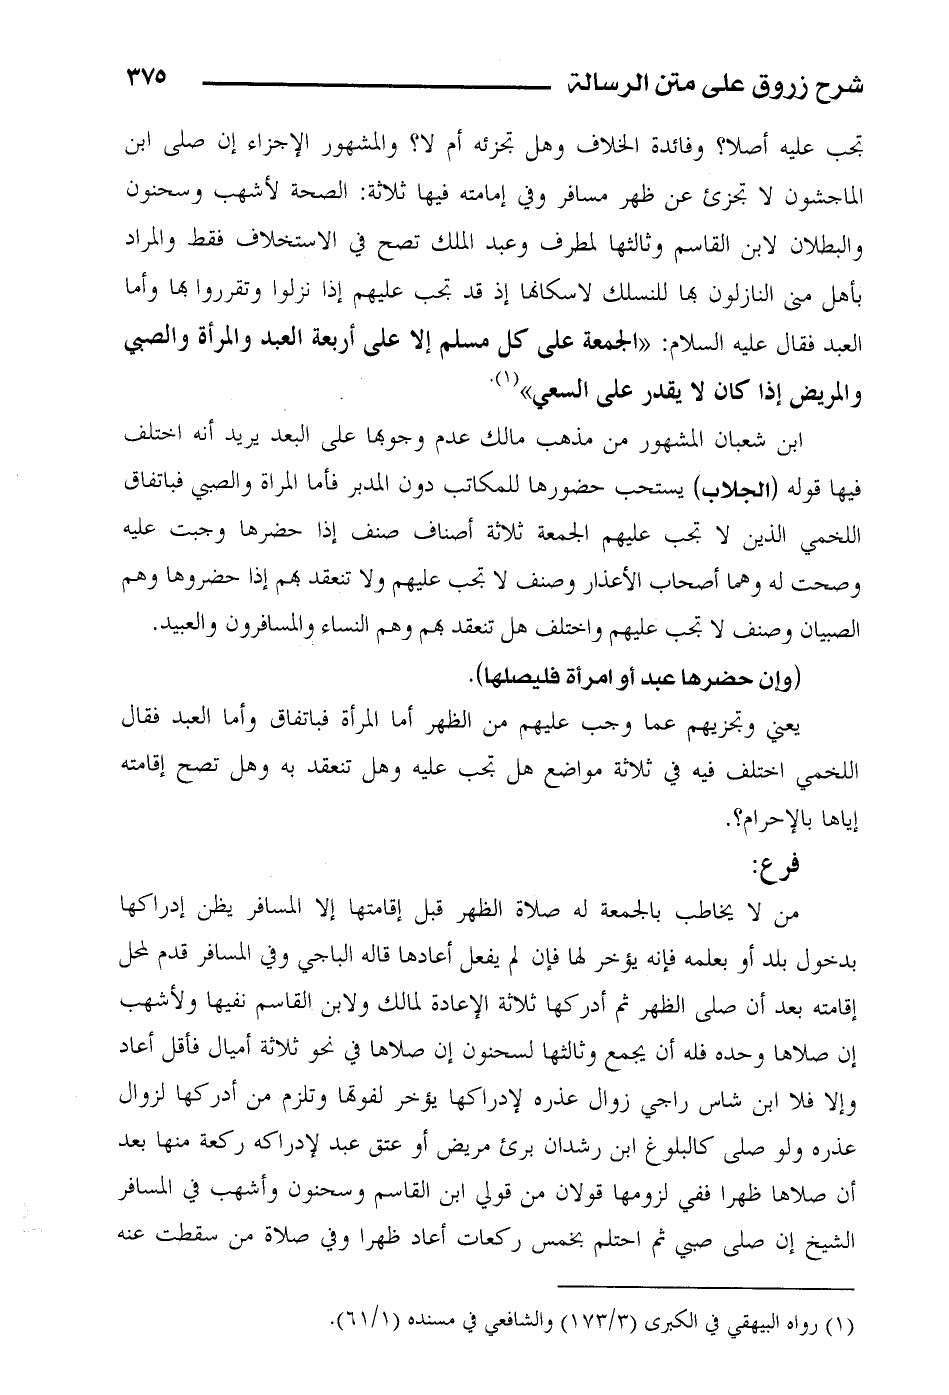 شرح زروق على متن الرسالة ٣٧٥
تجب عليه أصلا؟ وفائدة الخلاف وهل تجزئه أم لا؟ والمشهور الإجزاء إن صلى ابن
الماجشون لا تجزئ عن ظهر مسافر وفي إمامته فيها ثلاثة: الصحة لأشهب وسحنون
والبطلان لابن القاسم وثالثها لمطرف وعبد الملك تصح في الاستخلاف فقط والمراد
بأهل منى النازلون بها للنسلك لاسكانها إذ قد تجب عليهم إذا نزلوا وتقرروا بها وأما
العبد فقال عليه السلام: «الجمعة على كل مسلم إلا على أربعة العبد والمرأة والصبي
والمريض إذا كان لا يقدر على السعي»(١).
ابن شعبان المشهور من مذهب مالك عدم وجوبها على البعد يريد أنه اختلف
فيها قوله (الجلاب) يستحب حضورها للمكاتب دون المدبر فأما المراة والصبي فباتفاق
اللخمي الذين لا تجب عليهم الجمعة ثلاثة أصناف صنف إذا حضرها وجبت عليه
وصحت له وهما أصحاب الأعذار وصنف لا تجب عليهم ولا تنعقد بهم إذا حضروها وهم
الصبيان وصنف لا تجب عليهم واختلف هل تنعقد بهم وهم النساء والمسافرون والعبيد.
(وإن حضرها عبد أو امرأة فليصلها).
يعني وتجزيهم عما وجب عليهم من الظهر أما المرأة فباتفاق وأما العبد فقال
اللخمي اختلف فيه في ثلاثة مواضع هل تجب عليه وهل تنعقد به وهل تصح إقامته
إياها بالإحرام؟.
فرع:
من لا يخاطب بالجمعة له صلاة الظهر قبل إقامتها إلا المسافر يظن إدراكها
بدخول بلد أو بعلمه فإنه يؤخر لها فإن لم يفعل أعادها قاله الباجي وفي المسافر قدم لمحل
إقامته بعد أن صلى الظهر ثم أدركها ثلاثة الإعادة لمالك ولابن القاسم نفيها ولأشهب
إن صلاها وحده فله أن يجمع وثالثها لسحنون إن صلاها في نحو ثلاثة أميال فأقل أعاد
وإلا فلا ابن شاس راجي زوال عذره لإدراكها يؤخر لفوتها وتلزم من أدركها لزوال
عذره ولو صلى كالبلوغ ابن رشدان برئ مريض أو عتق عبد لإدراكه ركعة منها بعد
أن صلاها ظهرا ففي لزومها قولان من قولي ابن القاسم وسحنون وأشهب في المسافر
الشيخ إن صلى صبي ثم احتلم بخمس ركعات أعاد ظهرا وفي صلاة من سقطت عنه
(١) رواه البيهقي في الكبرى (١٧٣/٣) والشافعي في مسنده (٦١/١).